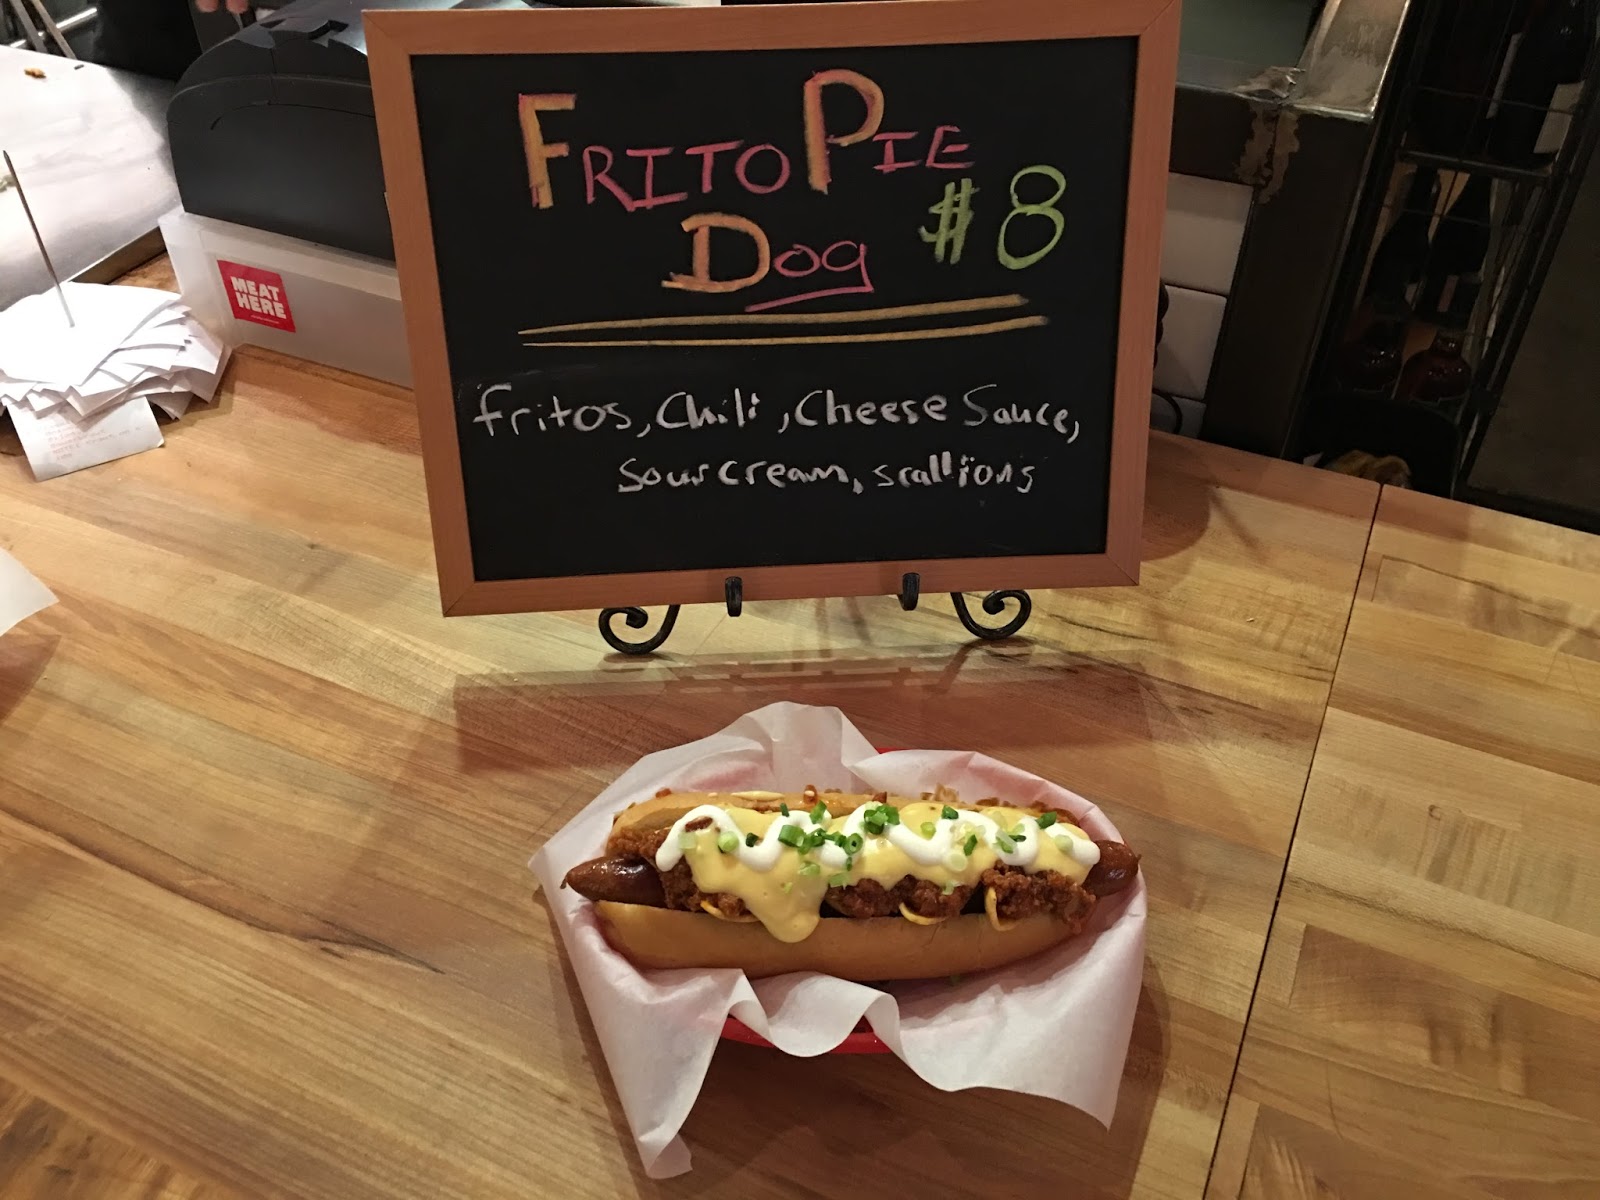 FRITO PIE
DOG $8
fritos, Chili, Cheese Sauce,
sour cream, scallions
MEAT
HERE